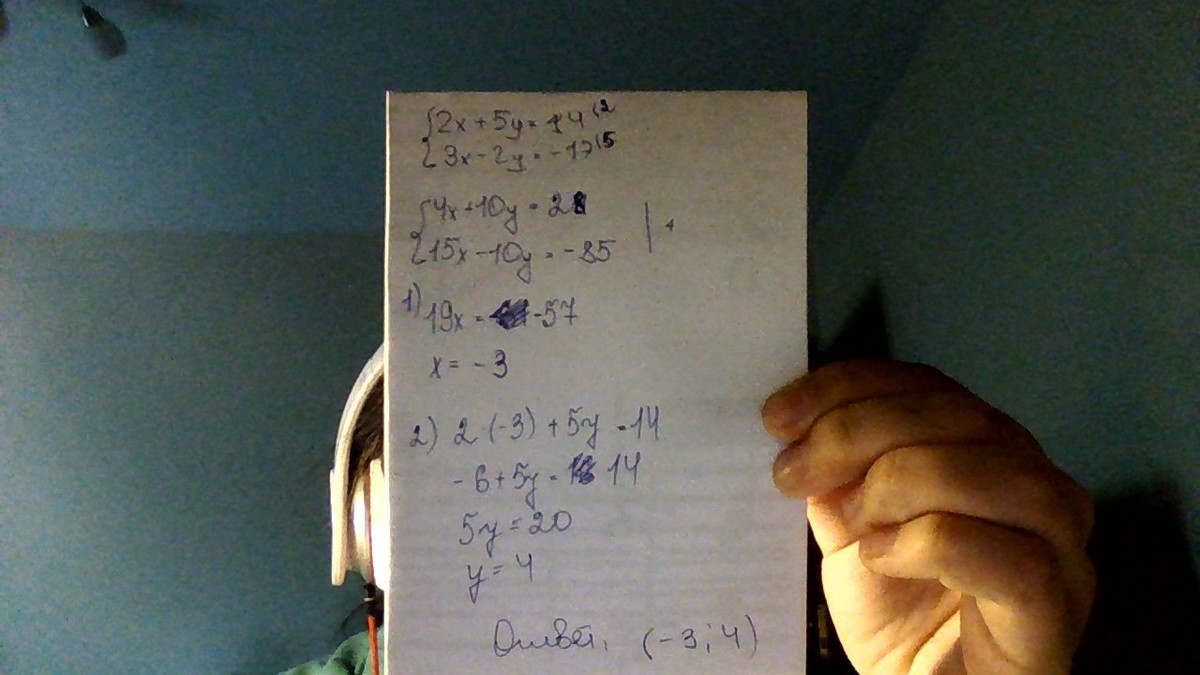 {2x + 5y = 14 (2
{3x - 2y = -17 (5
{4x + 10y = 28 | +
{15x - 10y = -85
1) 19x = -57
x = -3
2) 2·(-3) + 5y = 14
-6 + 5y = 14
5y = 20
y = 4
Ответ: (-3; 4)